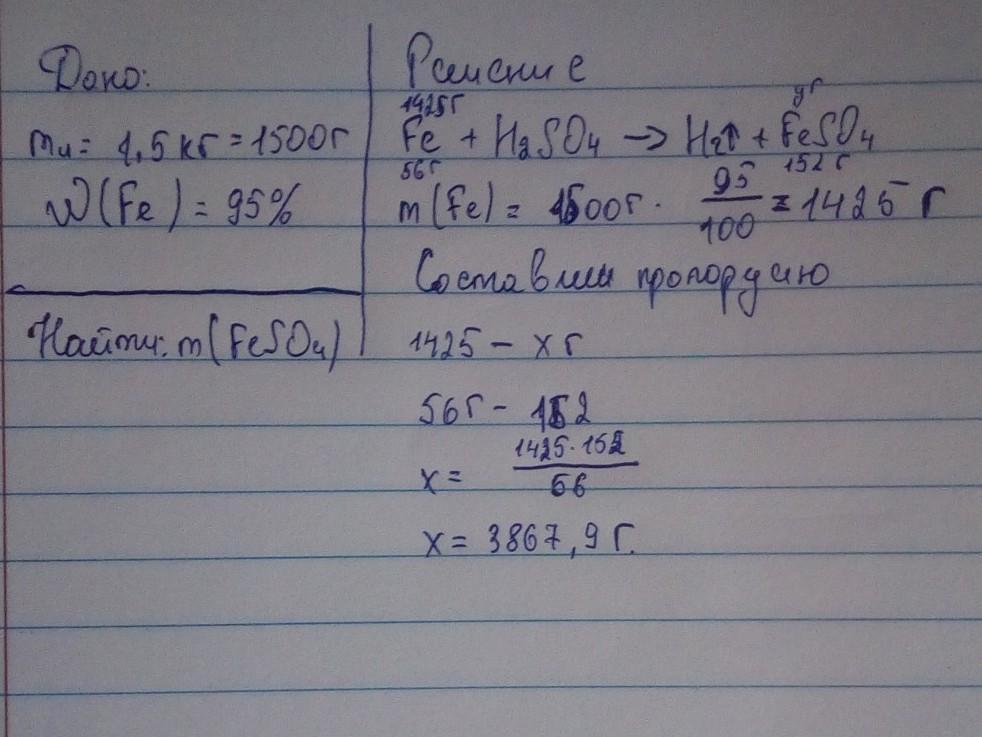 Дано:
m ч= 1,5 кг = 1500г
W(Fe) = 95%
Найти: m(FeSO4)
Решение
1425г уг
Fe + H2SO4 → H2↑ + FeSO4
56г 152 г
m(Fe) = 1500г · 95/100 = 1425 г
Составим пропорцию
1425 – x г
56г – 152
x = 1425·152/56
x = 3867,9 г.